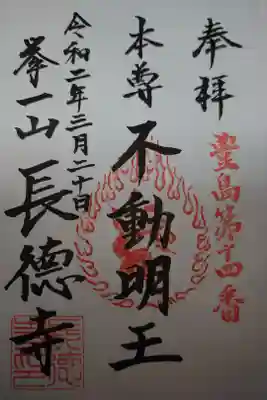 奉拝
豊島第十四番
本尊
不動明王
令和二年三月二十日
拳一山
長德寺